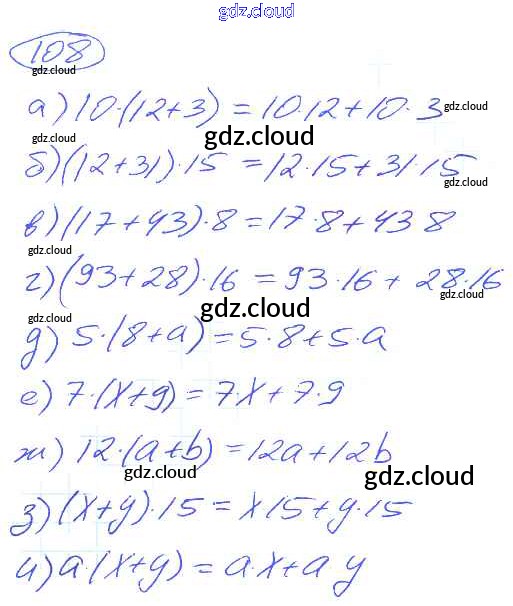 gdz.cloud
108
gdz.cloud
а) 10·(12+3) = 10·12+10·3
gdz.cloud
gdz.cloud
gdz.cloud
б) (12+31)·15 = 12·15+31·15
gdz.cloud
в) (17+43)·8 = 17·8+43 8
gdz.cloud
г) (93+28)·16 = 93·16+ 28·16
gdz.cloud
gdz.cloud
gdz.cloud
д) 5·(8+а)=5·8+5·а
е) 7·(х+9)=7·х+7·9
ж) 12·(а+b)=12а+12b
gdz.cloud
gdz.cloud
з) (х+у)·15=х15+у·15
и) а·(х+у) = а·х+а у